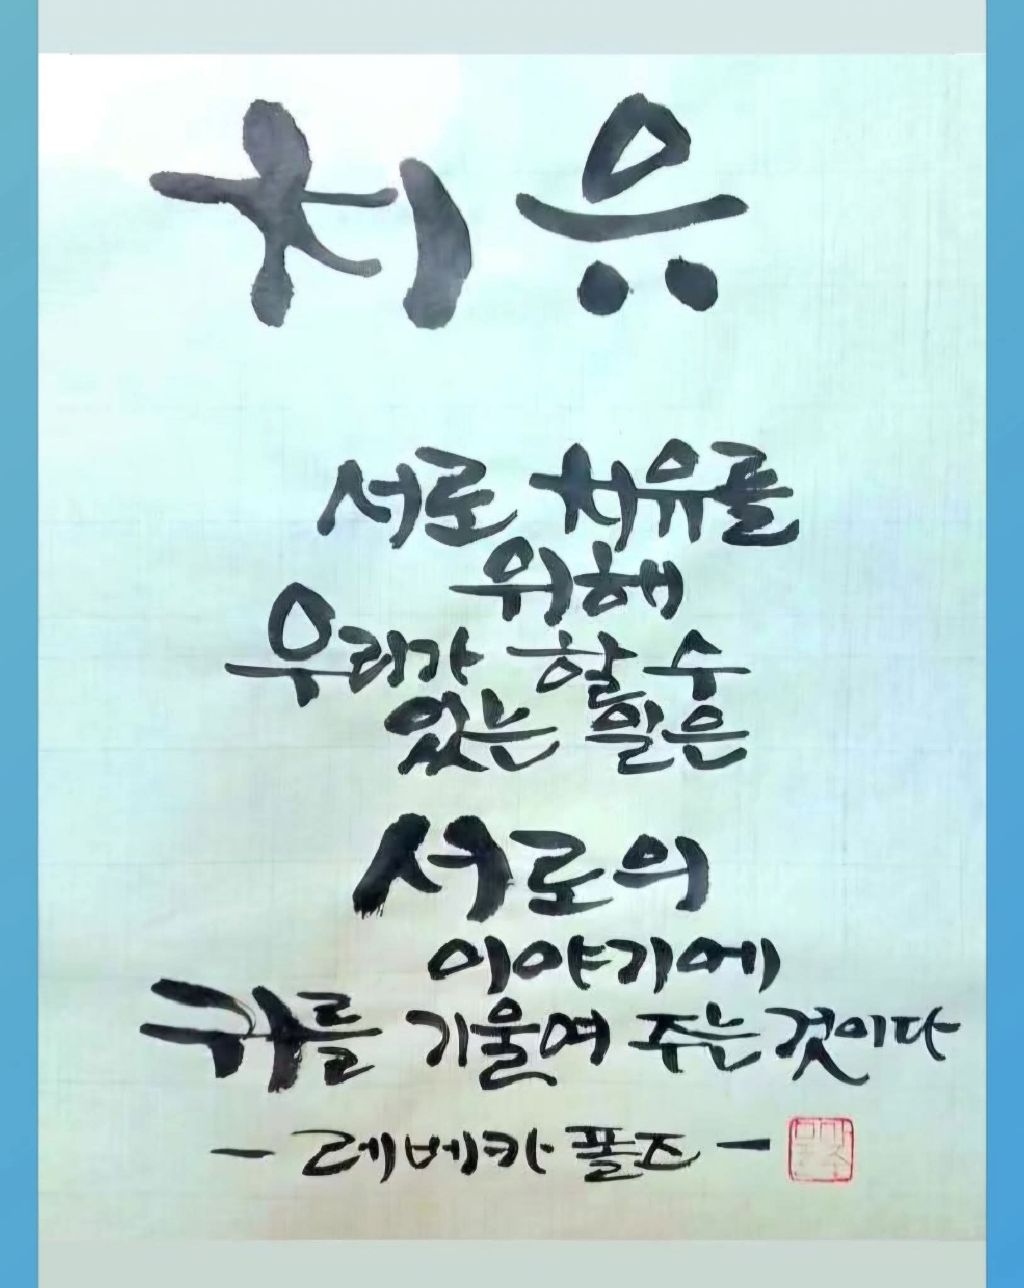 치유
서로 치유를
위해
우리가 할 수
있는 일은
서로의
이야기에
귀를 기울여 주는것이다
- 레베카 폴즈 -